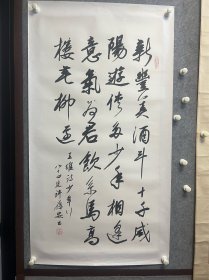 新豐美酒斗十千咸
陽遊俠多少年相逢
意氣為君飲系馬高
樓垂柳邊
王維詩少年行